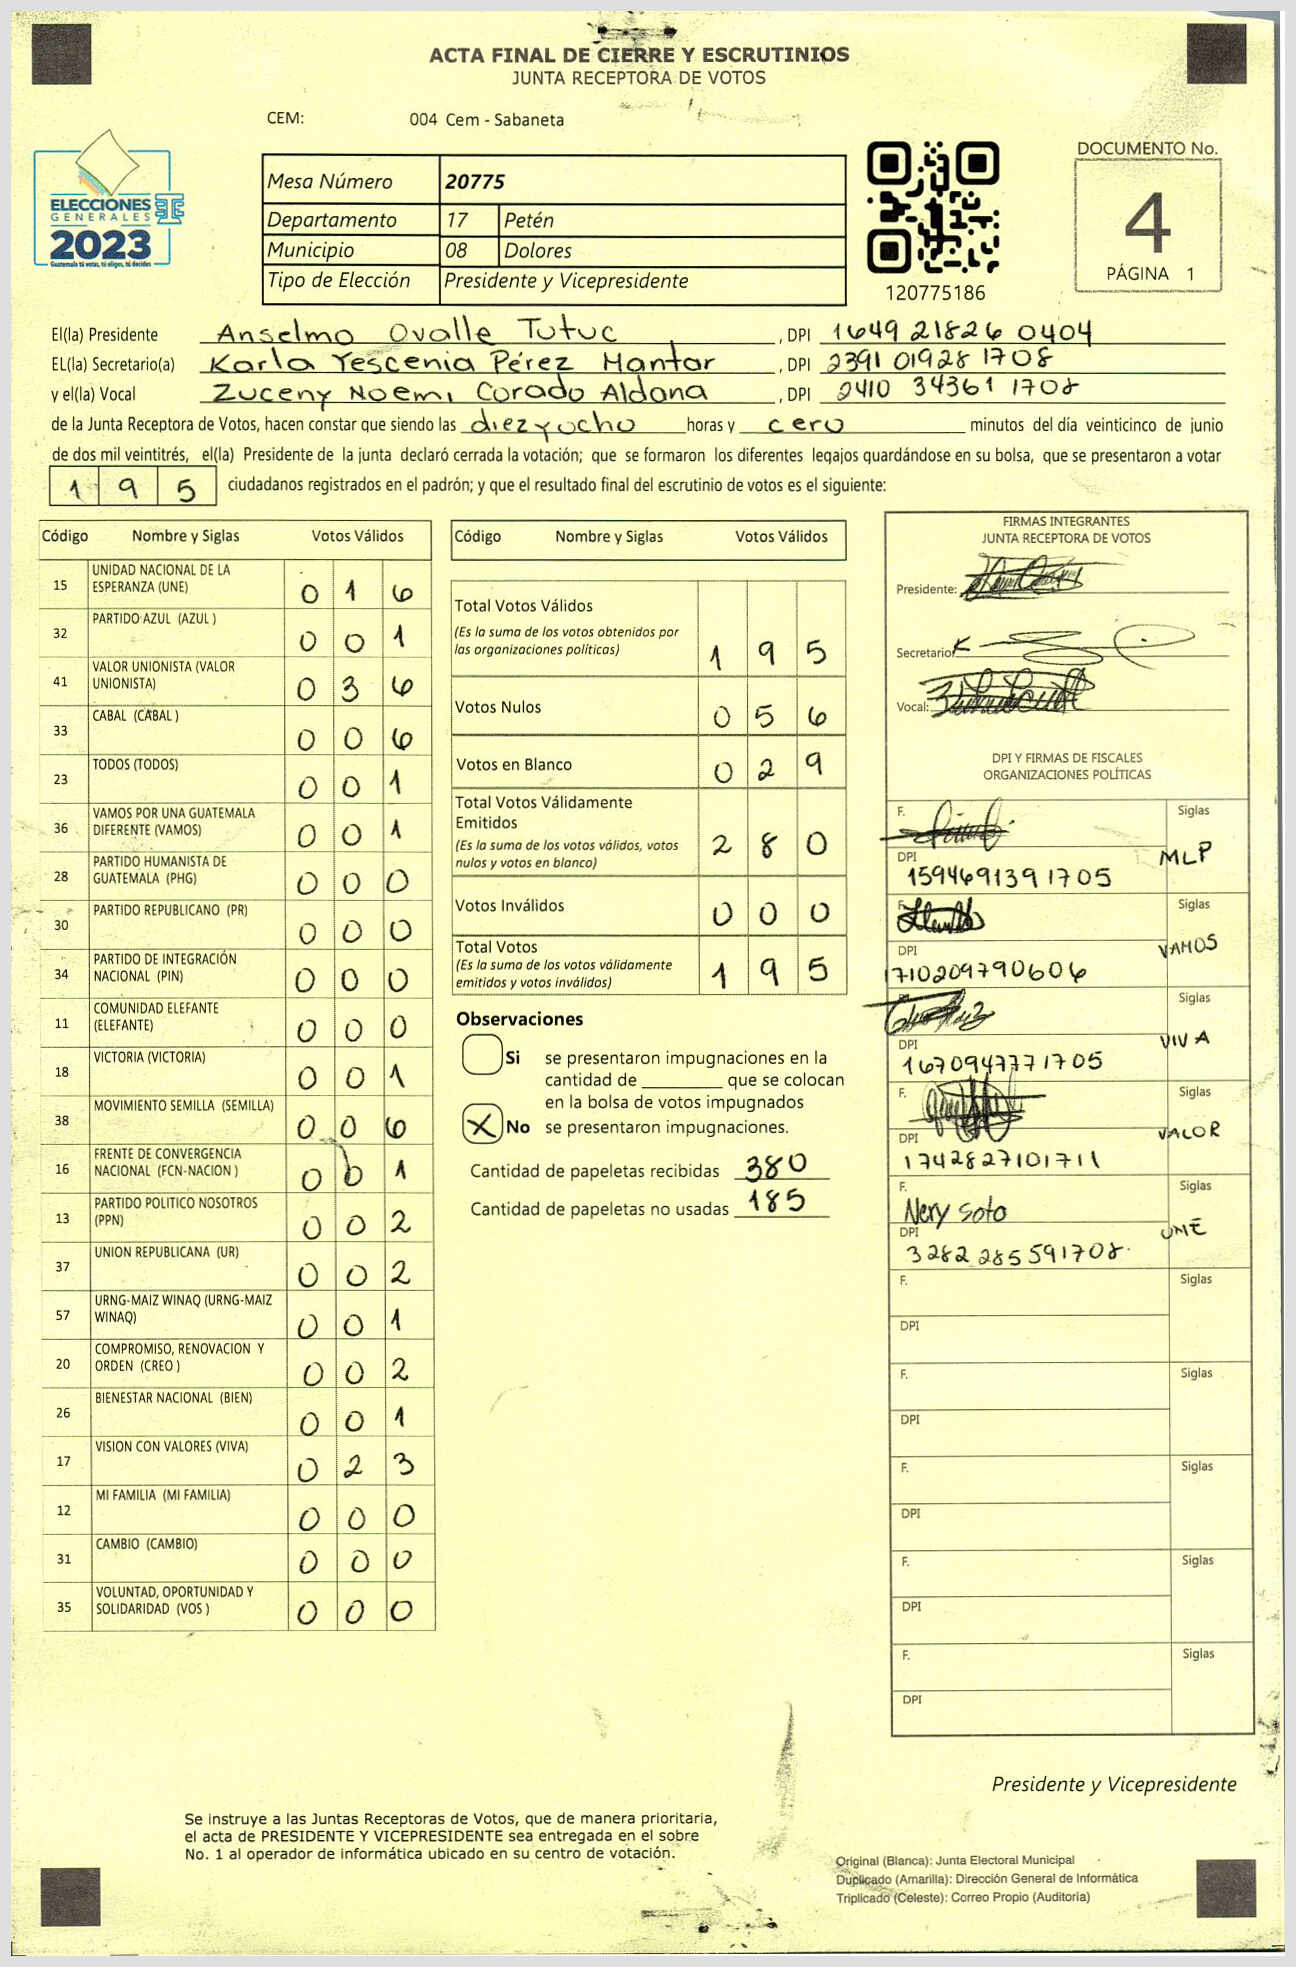 ACTA FINAL DE CIERRE Y ESCRUTINIOS
JUNTA RECEPTORA DE VOTOS
CEM: 004 Cem - Sabaneta
ELECCIONES
GENERALES
2023
Guatemala tú votas, tú eliges, tú decides
Mesa Número 20775
Departamento 17 Petén
Municipio 08 Dolores
Tipo de Elección Presidente y Vicepresidente
120775186
DOCUMENTO No.
4
PÁGINA 1
El(la) Presidente Anselmo Ovalle Tutuc , DPI 1649 21826 0404
EL(la) Secretario(a) Karla Yescenia Pérez Mantar , DPI 2391 01928 1708
y el(la) Vocal Zuceny Noemi Corado Aldana , DPI 2410 34361 1708
de la Junta Receptora de Votos, hacen constar que siendo las diez y ocho horas y cero minutos del día veinticinco de junio
de dos mil veintitrés, el(la) Presidente de la junta declaró cerrada la votación; que se formaron los diferentes legajos guardándose en su bolsa, que se presentaron a votar
1 9 5 ciudadanos registrados en el padrón; y que el resultado final del escrutinio de votos es el siguiente:
Código Nombre y Siglas Votos Válidos
15 UNIDAD NACIONAL DE LA ESPERANZA (UNE) 0 1 6
32 PARTIDO AZUL (AZUL ) 0 0 1
41 VALOR UNIONISTA (VALOR UNIONISTA) 0 3 6
33 CABAL (CABAL ) 0 0 6
23 TODOS (TODOS) 0 0 1
36 VAMOS POR UNA GUATEMALA DIFERENTE (VAMOS) 0 0 1
28 PARTIDO HUMANISTA DE GUATEMALA (PHG) 0 0 0
30 PARTIDO REPUBLICANO (PR) 0 0 0
34 PARTIDO DE INTEGRACIÓN NACIONAL (PIN) 0 0 0
11 COMUNIDAD ELEFANTE (ELEFANTE) 0 0 0
18 VICTORIA (VICTORIA) 0 0 1
38 MOVIMIENTO SEMILLA (SEMILLA) 0 0 6
16 FRENTE DE CONVERGENCIA NACIONAL (FCN-NACION ) 0 0 1
13 PARTIDO POLITICO NOSOTROS (PPN) 0 0 2
37 UNION REPUBLICANA (UR) 0 0 2
57 URNG-MAIZ WINAQ (URNG-MAIZ WINAQ) 0 0 1
20 COMPROMISO, RENOVACION Y ORDEN (CREO ) 0 0 2
26 BIENESTAR NACIONAL (BIEN) 0 0 1
17 VISION CON VALORES (VIVA) 0 2 3
12 MI FAMILIA (MI FAMILIA) 0 0 0
31 CAMBIO (CAMBIO) 0 0 0
35 VOLUNTAD, OPORTUNIDAD Y SOLIDARIDAD (VOS ) 0 0 0
Código Nombre y Siglas Votos Válidos
Total Votos Válidos
(Es la suma de los votos obtenidos por
las organizaciones políticas) 1 9 5
Votos Nulos 0 5 6
Votos en Blanco 0 2 9
Total Votos Válidamente
Emitidos
(Es la suma de los votos válidos, votos
nulos y votos en blanco) 2 8 0
Votos Inválidos 0 0 0
Total Votos
(Es la suma de los votos válidamente
emitidos y votos inválidos) 1 9 5
Observaciones
Si se presentaron impugnaciones en la
cantidad de ________ que se colocan
en la bolsa de votos impugnados
X No se presentaron impugnaciones.
Cantidad de papeletas recibidas 380
Cantidad de papeletas no usadas 185
FIRMAS INTEGRANTES
JUNTA RECEPTORA DE VOTOS
Presidente:
Secretario:
Vocal:
DPI Y FIRMAS DE FISCALES
ORGANIZACIONES POLÍTICAS
F. Siglas
DPI MLP
1594691391705
F. Siglas
DPI VAMOS
1710209790606
Siglas
DPI VIVA
1670947771705
F. Siglas
DPI VALOR
1742827101711
F. Siglas
Nery Soto
DPI UNE
3282 285591708
F. Siglas
DPI
F. Siglas
DPI
F. Siglas
DPI
F. Siglas
DPI
F. Siglas
DPI
Presidente y Vicepresidente
Se instruye a las Juntas Receptoras de Votos, que de manera prioritaria,
el acta de PRESIDENTE Y VICEPRESIDENTE sea entregada en el sobre
No. 1 al operador de informática ubicado en su centro de votación.
Original (Blanca): Junta Electoral Municipal
Duplicado (Amarilla): Dirección General de Informática
Triplicado (Celeste): Correo Propio (Auditoría)